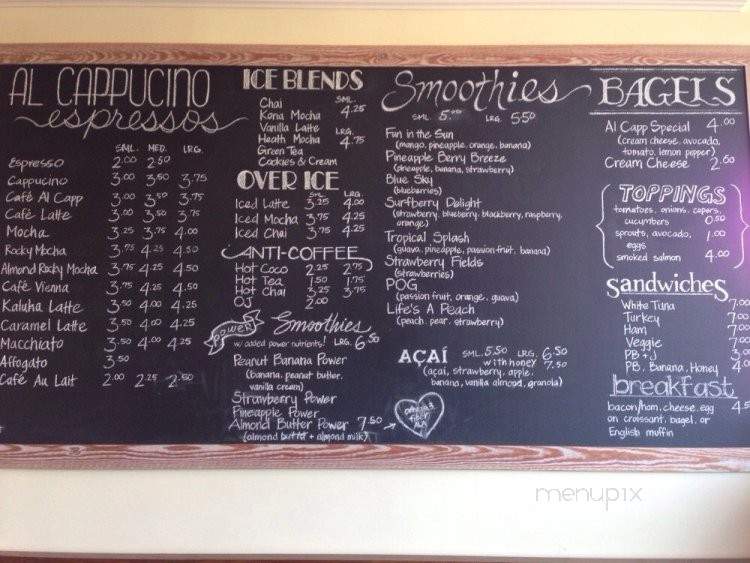 AL CAPPUCINO
espressos
SML. MED. LRG.
Espresso 2.00 2.50
Cappucino 3.00 3.50 3.75
Café Al Capp 3.00 3.50 3.75
Café Latte 3.00 3.50 3.75
Mocha 3.25 3.75 4.00
Rocky Mocha 3.75 4.25 4.50
Almond Rocky Mocha 3.75 4.25 4.50
Café Vienna 3.75 4.25 4.50
Kaluha Latte 3.50 4.00 4.25
Caramel Latte 3.50 4.00 4.25
Macchiato 3.50 4.00 4.25
Affogato 3.50
Café Au Lait 2.00 2.25 2.50
ICE BLENDS
Chai SML.
Kona Mocha 4.25
Vanilla Latte LRG.
Heath Mocha 4.75
Green Tea
Cookies & Cream
OVER ICE
SML. LRG.
Iced Latte 3.25 4.00
Iced Mocha 3.75 4.25
Iced Chai 3.75 4.25
ANTI-COFFEE
Hot Coco 2.25 2.75
Hot Tea 1.50 1.75
Hot Chai 3.25 3.75
OJ 2.00
POWER Smoothies
w/ added power nutrients! LRG. 6.50
Peanut Banana Power
(banana, peanut butter,
vanilla cream)
Strawberry Power
Pineapple Power
Almond Butter Power 7.50
(almond butter + almond milk)
Smoothies
SML. 5.00 LRG. 5.50
Fun in the Sun
(mango, pineapple, orange, banana)
Pineapple Berry Breeze
(pineapple, banana, strawberry)
Blue Sky
(blueberries)
Surfberry Delight
(strawberry, blueberry, blackberry, raspberry,
orange)
Tropical Splash
(guava, pineapple, passion fruit, banana)
Strawberry Fields
(strawberries)
POG
(passion fruit, orange, guava)
Life's A Peach
(peach, pear, strawberry)
AÇAÍ SML. 5.50 LRG. 6.50
with honey 7.50
(açaí, strawberry, apple,
banana, vanilla almond, granola)
omega 3
fiber
BAGELS
Al Capp Special 4.00
(cream cheese, avocado,
tomato, lemon pepper)
Cream Cheese 2.60
TOPPINGS
tomatoes, onions, capers,
cucumbers 0.50
sprouts, avocado, 1.00
eggs
smoked salmon 4.00
Sandwiches
White Tuna 7.00
Turkey 7.00
Ham 7.00
Veggie 7.00
PB + J 3.0
PB, Banana, Honey 4.0
breakfast
bacon/ham, cheese, egg 4.5
on croissant, bagel, or
English muffin
menupix